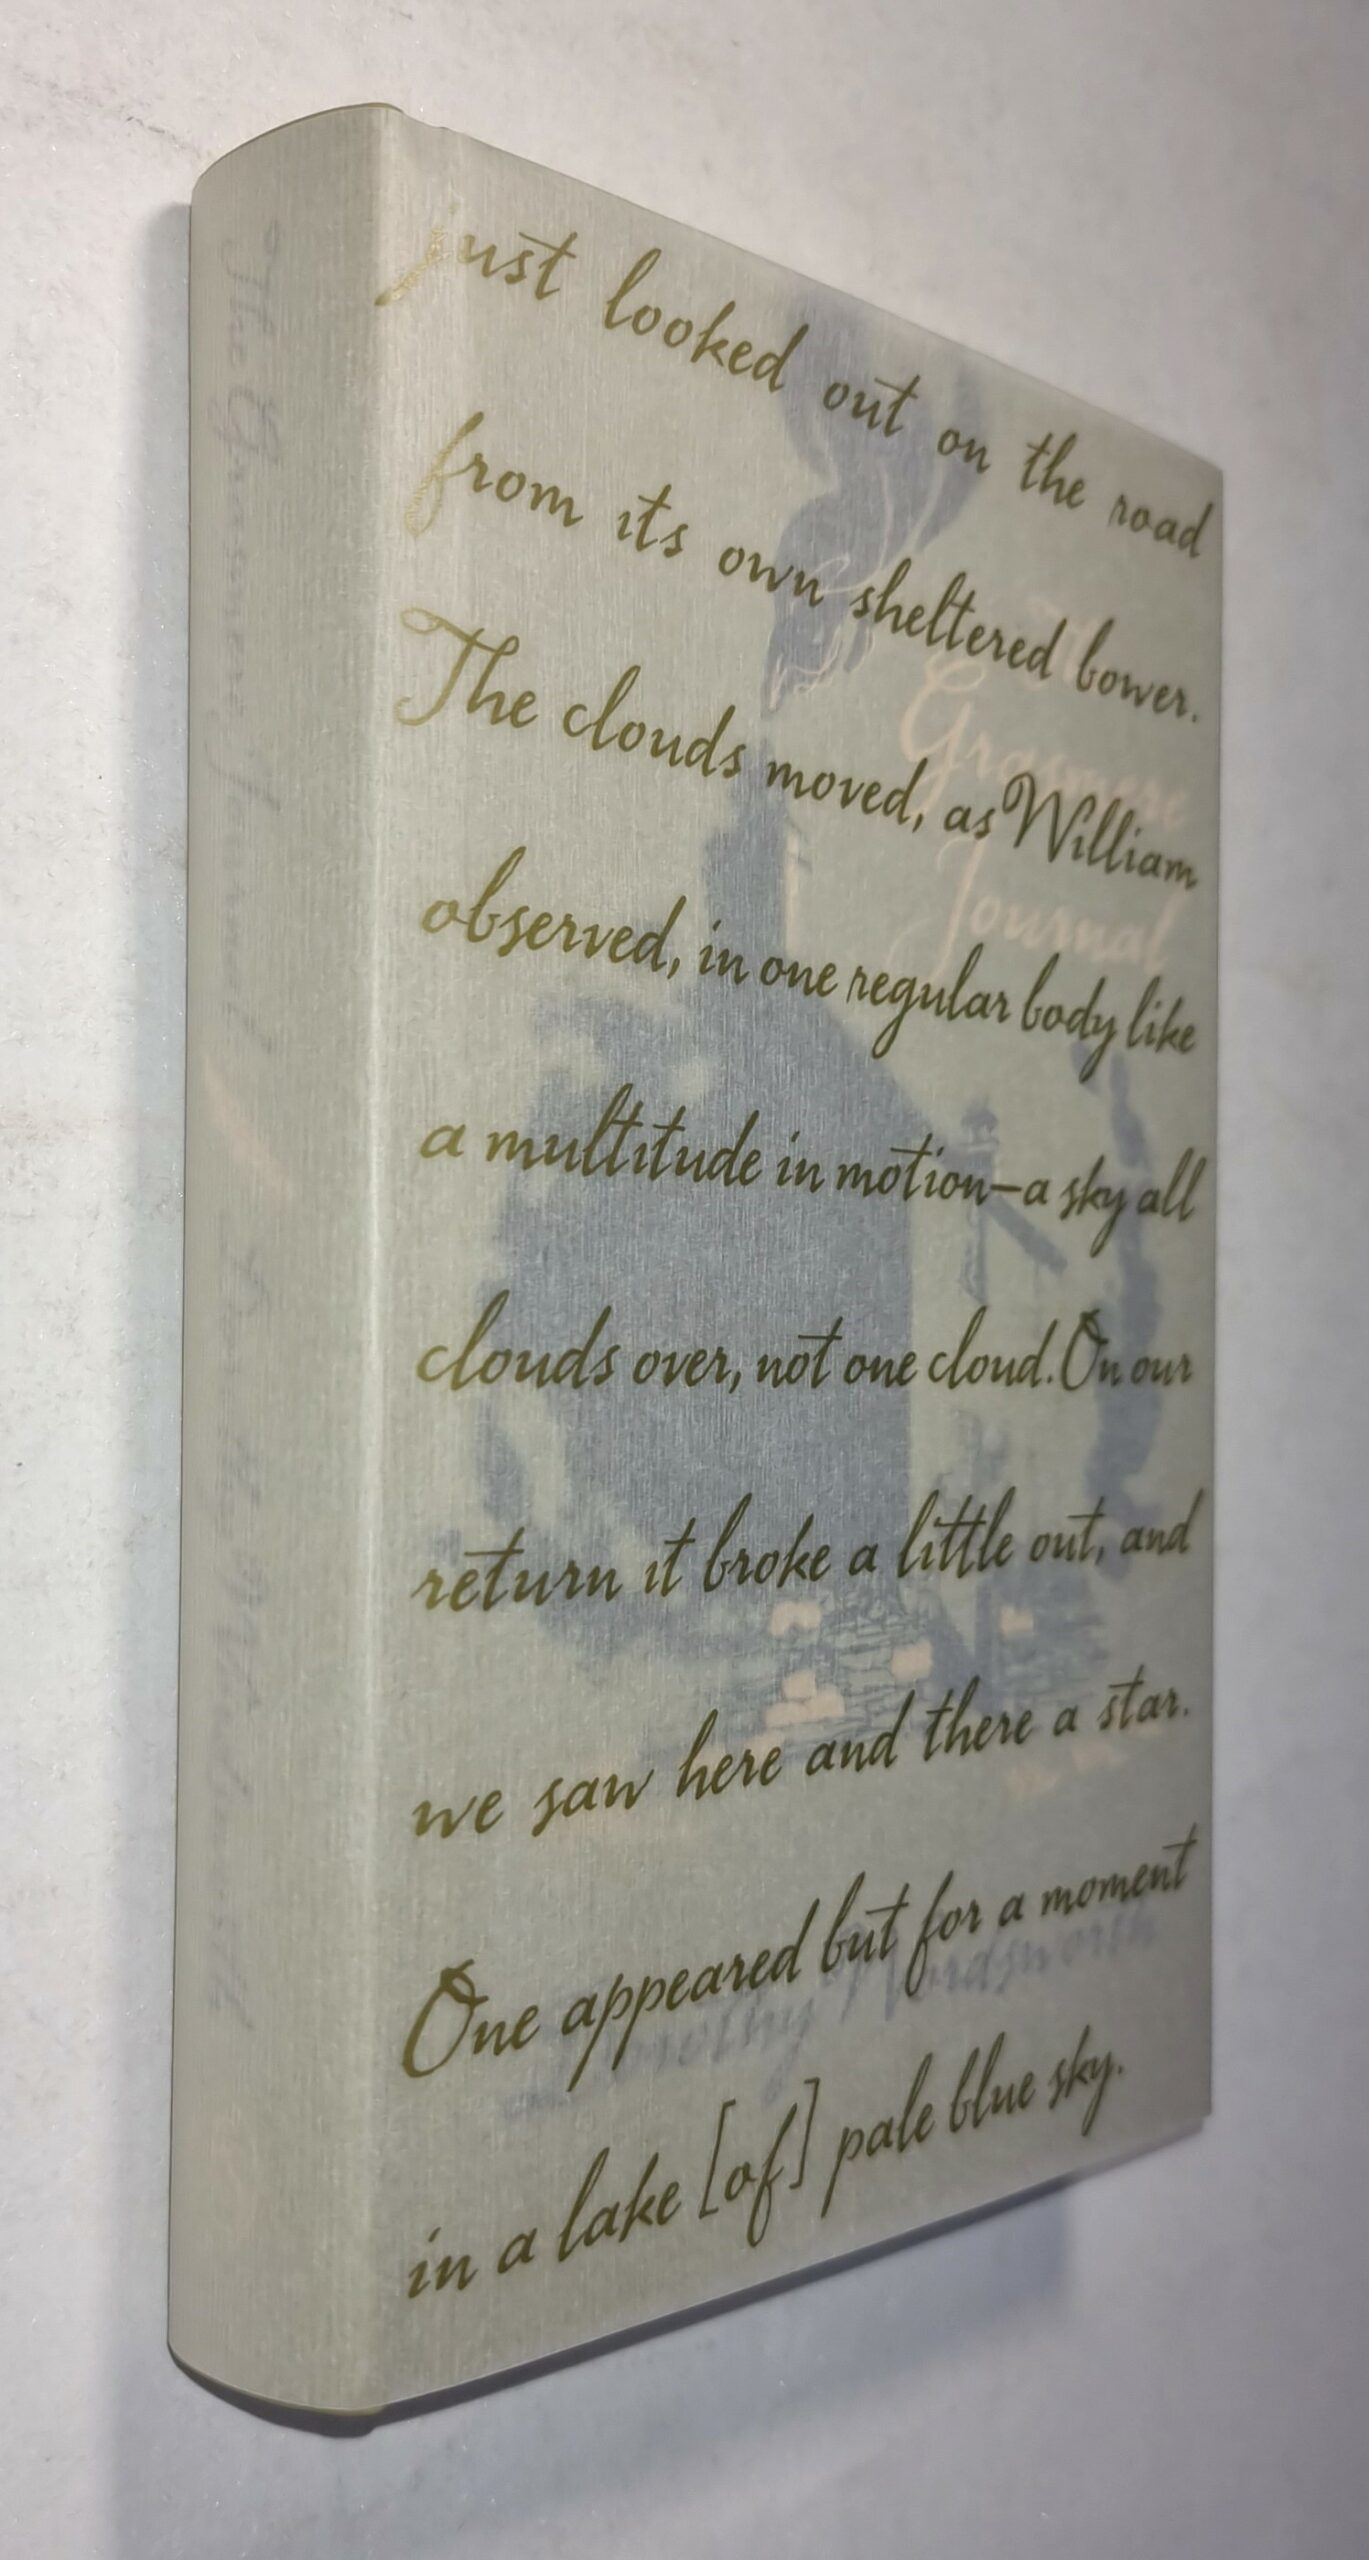 just looked out on the road
from its own sheltered bower.
The clouds moved, as William
observed, in one regular body like
a multitude in motion—a sky all
clouds over, not one cloud. On our
return it broke a little out, and
we saw here and there a star.
One appeared but for a moment
in a lake [of] pale blue sky.
The
Grasmere
Journal
Dorothy Wordsworth
The Grasmere Journal